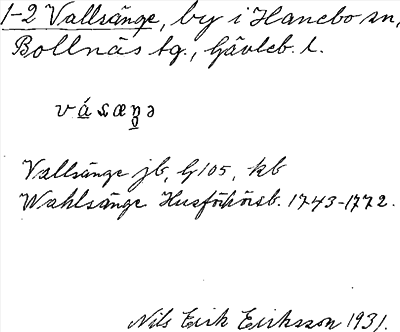 1-2 Vallsänge, by i Hanebo sn,
Bollnäs tg., Gävleb. l.
Vallsänge jb, G 105, kb
Wahlsänge Husförhörsb. 1743-1772.
Nils Eirik Eiriksson 1931.